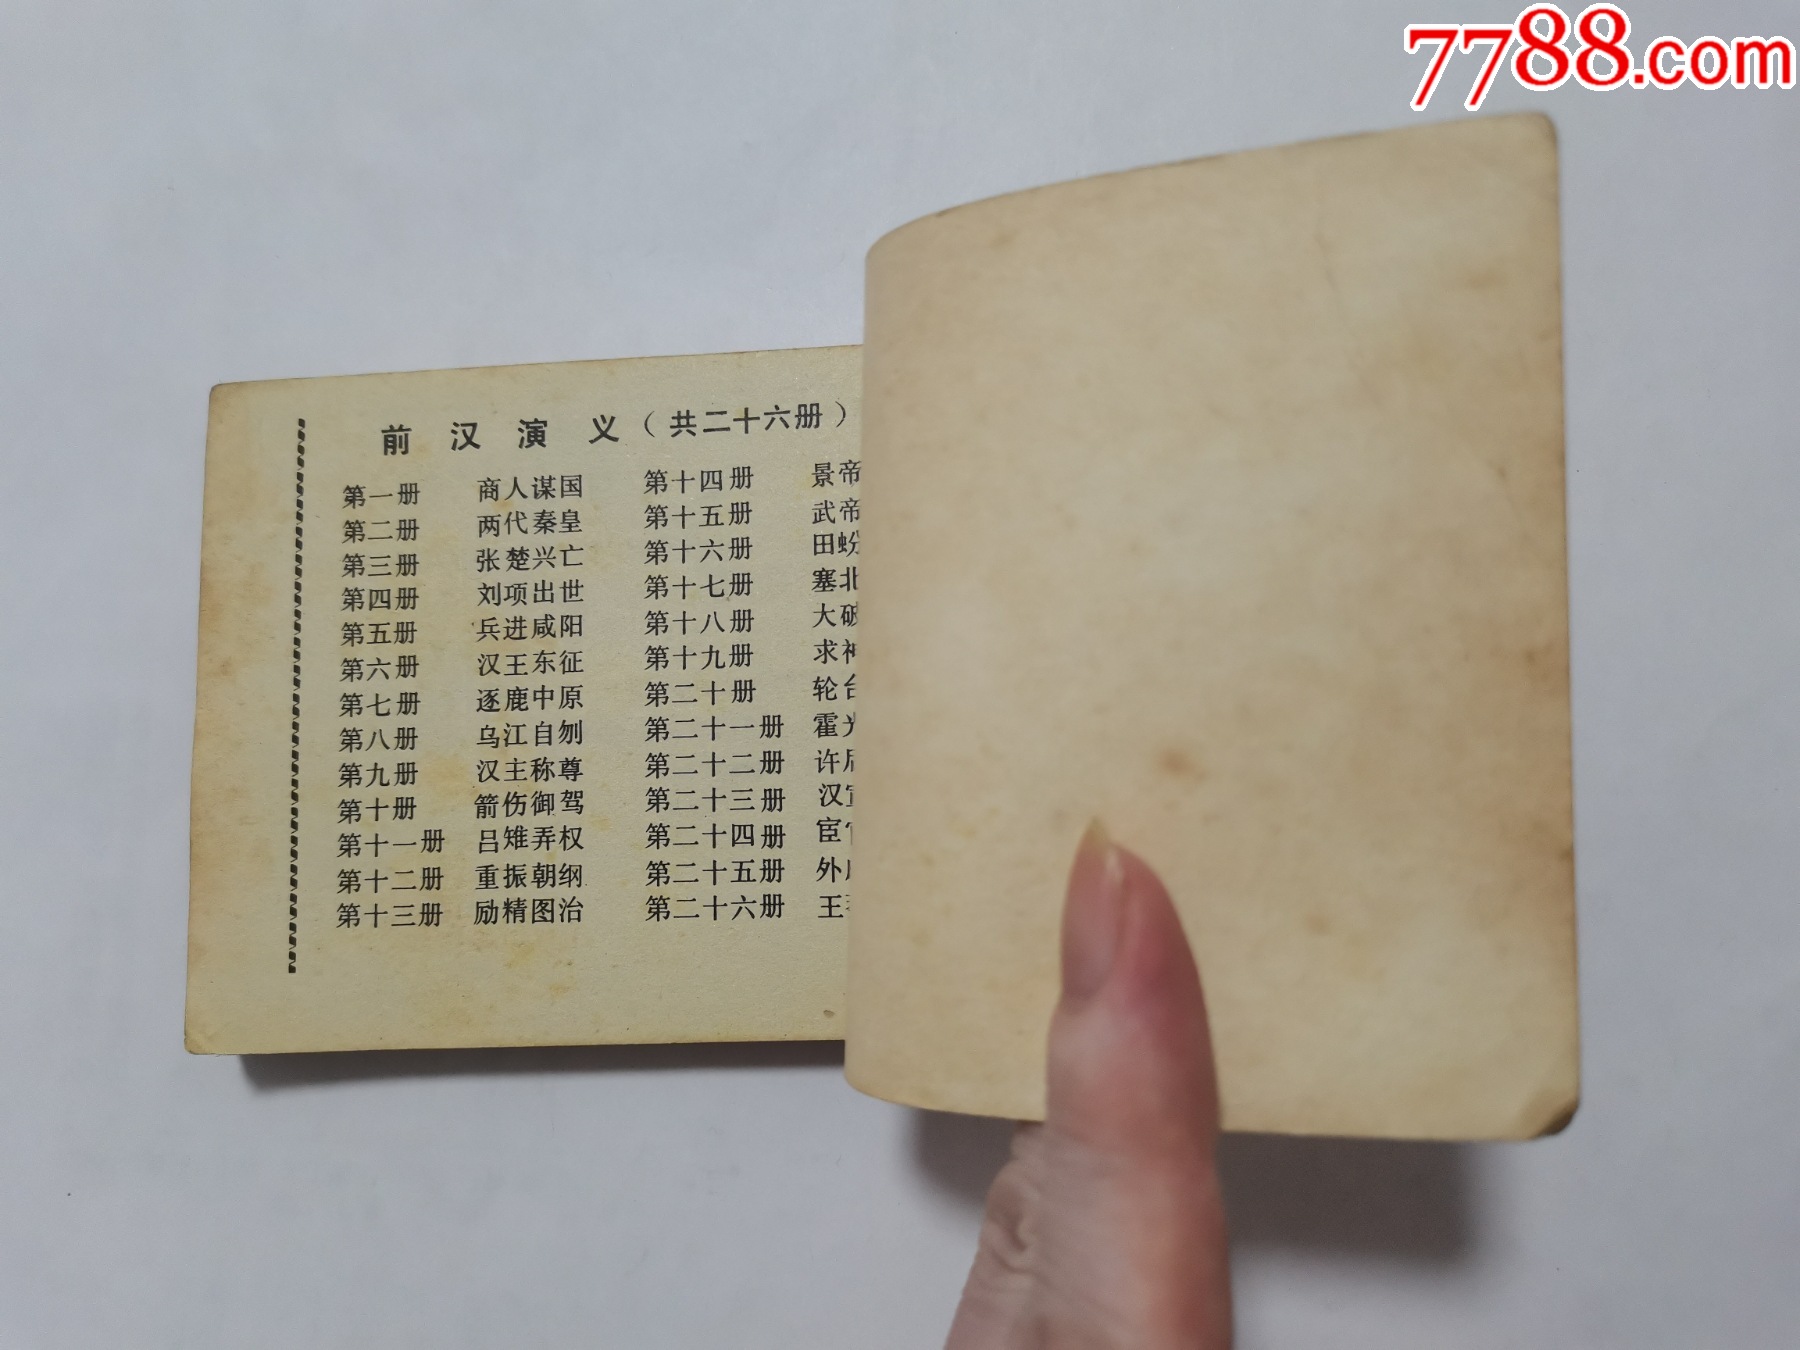 7788.com
前汉演义（共二十六册）
第一册 商人谋国
第二册 两代秦皇
第三册 张楚兴亡
第四册 刘项出世
第五册 兵进咸阳
第六册 汉王东征
第七册 逐鹿中原
第八册 乌江自刎
第九册 汉主称尊
第十册 箭伤御驾
第十一册 吕雉弄权
第十二册 重振朝纲
第十三册 励精图治
第十四册 景帝
第十五册 武帝
第十六册 田蚡
第十七册 塞北
第十八册 大破
第十九册 求神
第二十册 轮台
第二十一册 霍光
第二十二册 许
第二十三册 汉
第二十四册 宦
第二十五册 外
第二十六册 王